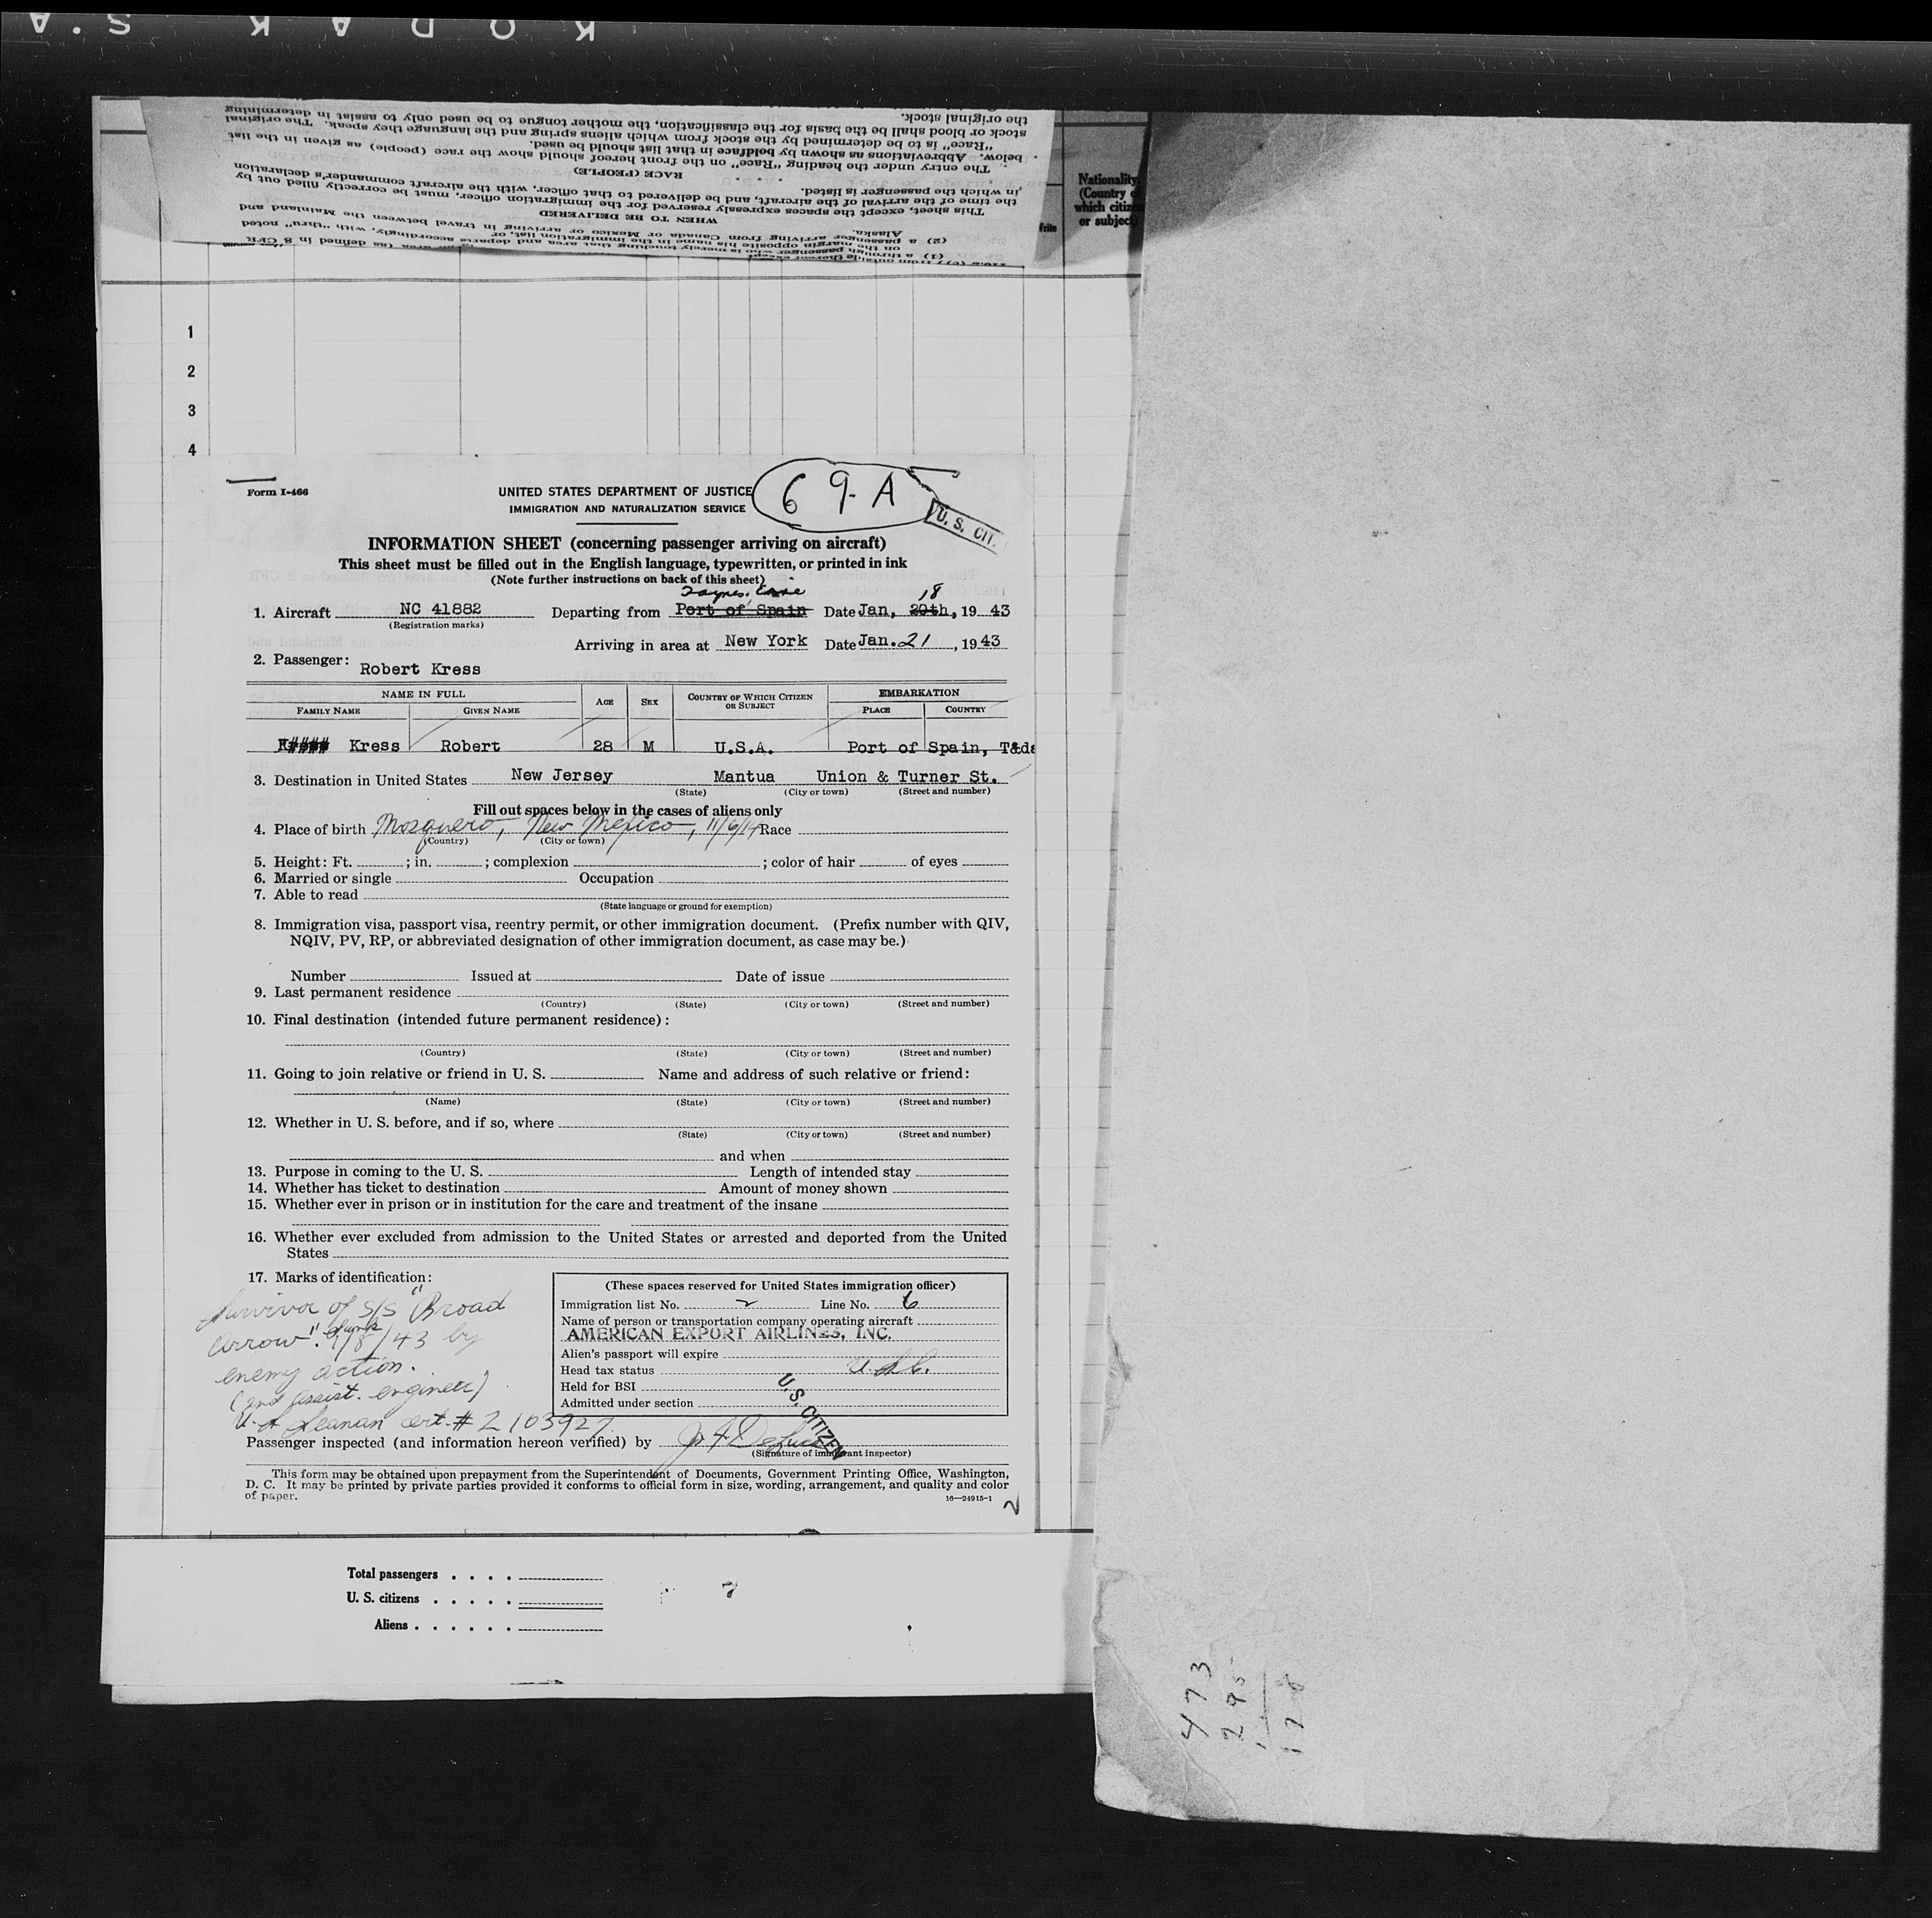 KODAK S.A
the original stock.
stock or blood shall be the basis for the classification, the mother tongue to be used only to assist in determining
"Race" is to be determined by the stock from which aliens spring and the language they speak. The original
below. Abbreviations as shown by boldface in that list should be used.
The entry under the heading "Race" on the front hereof should show the race (people) as given in the list
RACE (PEOPLE)
in which the passenger is listed.
the time of the arrival of the aircraft, and be delivered to that officer, with the aircraft commander's declaration
This sheet, except the spaces expressly reserved for the immigration officer, must be correctly filled out by
WHEN TO BE DELIVERED
Alaska.
(2) a passenger arriving from Canada or Mexico or arriving in travel between the Mainland and
on the margin opposite his name in the immigration list, or
(1) a through passenger who is merely touching that area and departs accordingly, with "thru" noted
Nationality
(Country o
which citize
or subject
1
2
3
4
Form I-466
UNITED STATES DEPARTMENT OF JUSTICE
IMMIGRATION AND NATURALIZATION SERVICE
69-A
U. S. CIT.
INFORMATION SHEET (concerning passenger arriving on aircraft)
This sheet must be filled out in the English language, typewritten, or printed in ink
(Note further instructions on back of this sheet)
18
1. Aircraft NC 41882 Departing from Port of Spain Date Jan, 20th, 19 43
(Registration marks)
Arriving in area at New York Date Jan. 21, 19 43
2. Passenger: Robert Kress
NAME IN FULL AGE SEX COUNTRY OF WHICH CITIZEN OR SUBJECT EMBARKATION
FAMILY NAME GIVEN NAME PLACE COUNTRY
Kress Robert 28 M U.S.A. Port of Spain, T&da
3. Destination in United States New Jersey Mantua Union & Turner St.
(State) (City or town) (Street and number)
Fill out spaces below in the cases of aliens only
4. Place of birth Mosquero, New Mexico, 11/6/14 Race
(Country) (City or town)
5. Height: Ft. ; in. ; complexion ; color of hair of eyes
6. Married or single Occupation
7. Able to read
(State language or ground for exemption)
8. Immigration visa, passport visa, reentry permit, or other immigration document. (Prefix number with QIV,
NQIV, PV, RP, or abbreviated designation of other immigration document, as case may be.)
Number Issued at Date of issue
9. Last permanent residence
(Country) (State) (City or town) (Street and number)
10. Final destination (intended future permanent residence):
(Country) (State) (City or town) (Street and number)
11. Going to join relative or friend in U. S. Name and address of such relative or friend:
(Name) (State) (City or town) (Street and number)
12. Whether in U. S. before, and if so, where
(State) (City or town) (Street and number)
and when
13. Purpose in coming to the U. S. Length of intended stay
14. Whether has ticket to destination Amount of money shown
15. Whether ever in prison or in institution for the care and treatment of the insane
16. Whether ever excluded from admission to the United States or arrested and deported from the United
States
17. Marks of identification:
Survivor of S/S "Broad
Arrow". Sunk 1/8/43 by
enemy action.
(2nd assist. engineer)
U.S. Seaman cert. # 2103927
(These spaces reserved for United States immigration officer)
Immigration list No. 2 Line No. 6
Name of person or transportation company operating aircraft
AMERICAN EXPORT AIRLINES, INC.
Alien's passport will expire
Head tax status
Held for BSI
Admitted under section
U. S. CITIZEN
Passenger inspected (and information hereon verified) by
(Signature of immigrant inspector)
This form may be obtained upon prepayment from the Superintendent of Documents, Government Printing Office, Washington,
D. C. It may be printed by private parties provided it conforms to official form in size, wording, arrangement, and quality and color
of paper.
16—24915-1
2
Total passengers . . . .
U. S. citizens . . . . .
Aliens . . . . . .
473